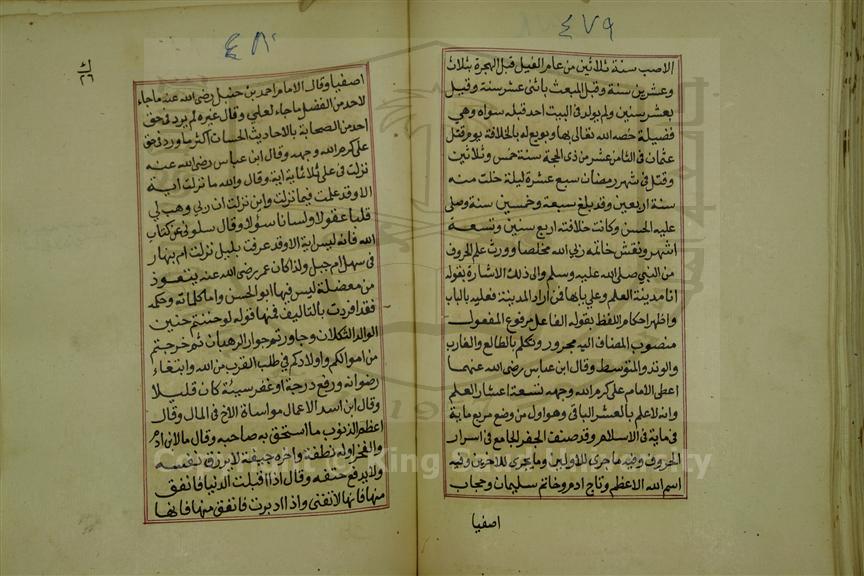 ٤٧٩
الاصب سنة ثلاثين من عام الفيل قبل الهجرة بثلاث
وعشرين سنة وقبل المبعث باثنى عشر سنة وقيل
بعشر سنين ولم يولد فى البيت احد قبله سواه وهى
فضيلة خصه الله تعالى بها وبويع له بالخلافة يوم قتل
عثمان فى الثامن عشر من ذى الحجة سنة خمس وثلاثين
وقتل فى شهر رمضان سبع عشرة ليلة خلت منه
سنة اربعين وقد بلغ سبعة وخمسين سنة وصلى
عليه الحسن وكانت خلافته اربع سنين وتسعة
اشهر ونقش خاتمه ربى الله مخلصا وورث علم الحروف
من النبى صلى الله عليه وسلم والى ذلك الاشارة بقوله
انا مدينة العلم وعلى بابها فمن أراد المدينة فعليه بالباب
واظهر احكام اللفظ بقوله الفاعل مرفوع المفعول
منصوب المضاف اليه مجرور وتكلم بالطالع والغارب
والوتد والمتوسط وقال ابن عباس رضى الله عنهما
اعطى الامام على كرم الله وجهه تسعة اعشار العلم
وانه لاعلم بالعشر الباقى وهو اول من وضع مربع ماية
فى ماية فى الاسلام وقد صنف الجفر الجامع فى اسرار
الحروف وفيه ما جرى للاولين وما يجرى للاخرين وفيه
اسم الله الاعظم وتاج ادم وخاتم سليمان وحجاب
اصفيا
٤٨٠
٢٦
اصفيا وقال الامام احمد بن حنبل رضى الله عنه ما جاء
لاحد من الفضل ما جاء لعلى وقال غيره لم يرد فى حق
احد من الصحابة بالاحاديث الحسان اكثر ما ورد فى حق
على كرم الله وجهه وقال ابن عباس رضى الله عنه
نزلت فى على ثلاثماية اية وقال والله ما نزلت اية
الا وقد علمت فيما نزلت واين نزلت ان ربى وهب لى
قلبا عقولا ولسانا سؤلا وقال سلونى عن كتاب
الله فانه ليس اية الا وقد عرفت بليل نزلت ام بنهار
فى سهل ام جبل ولذا كان عمر رضى الله عنه يتعوذ
من معضلة ليس فيها ابو الحسن واما كلماته وحكمه
فقد افردت بالتاليف فمنها قوله لو حننتم حنين
الواله الثكلان وجاورتم جوار الرهبان ثم خرجتم
من اموالكم واولادكم فى طلب القرب من الله وابتغاء
رضوانه ورفع درجة او غفر سيئة كان قليلا
وقال ان اسد الاعمال مواساة الاخ فى المال وقال
اعظم الذنوب ما استخف به صاحبه وقال ما لابن ادم
والفخر اوله نطفة واخره جيفة لا يرزق نفسه
ولا يدفع حتفه وقال اذا اقبلت الدنيا فانفق
منها فانها لا تفنى واذا ادبرت فانفق منها فانها
Copyright © King Saud University